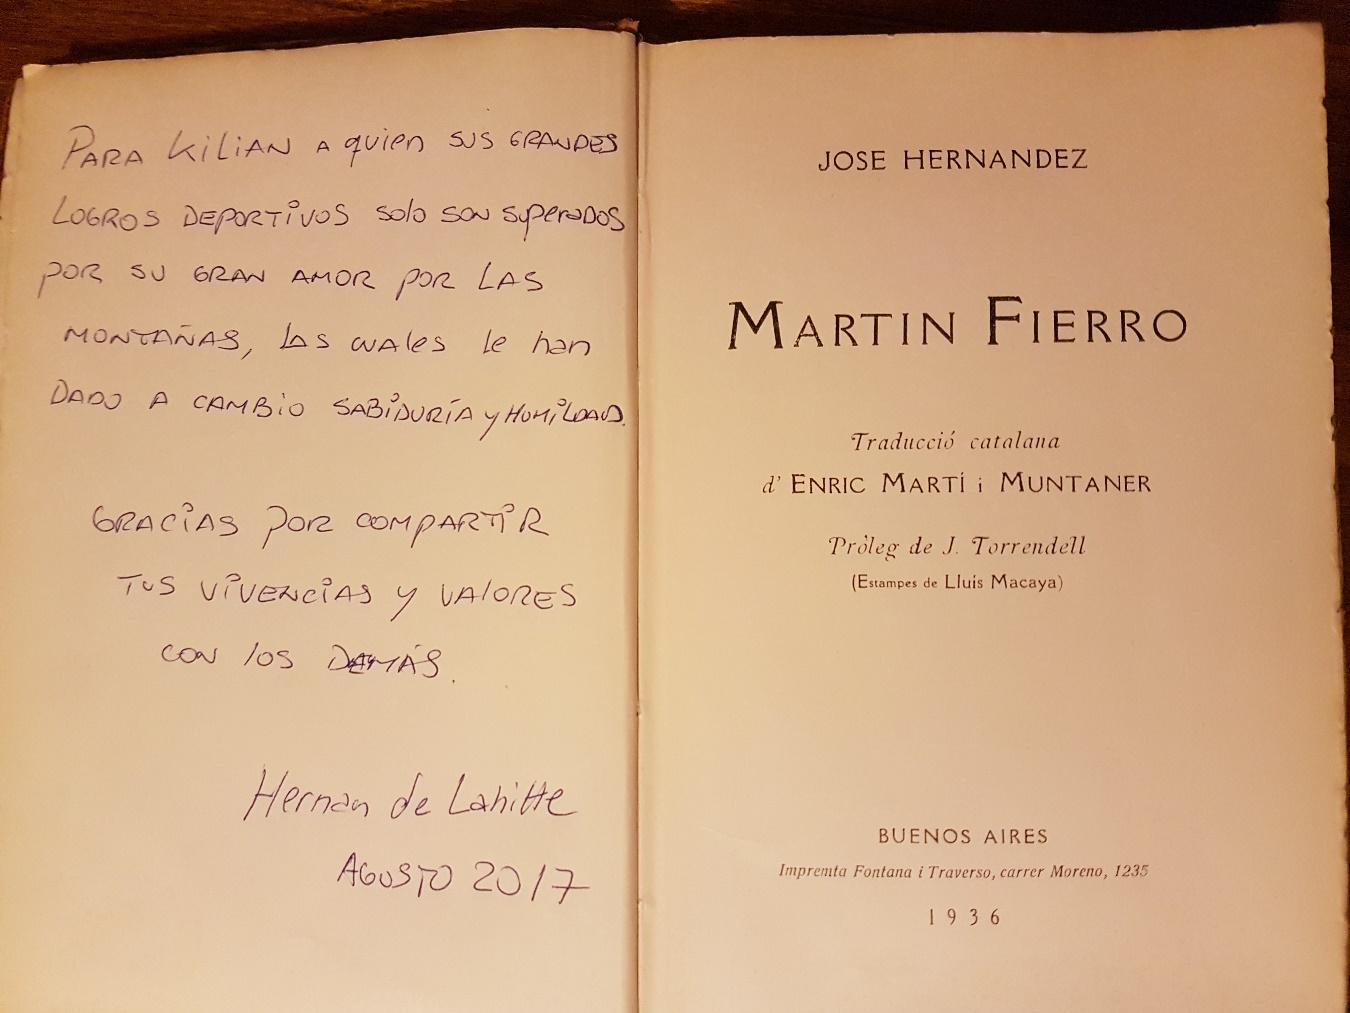 PARA KILIAN A quien SUS GRANDES
LOGROS DEPORTIVOS solo SON superADOS
POR SU GRAN AMOR POR LAS
MONTAÑAS, LAS cuales le han
DADO A CAMBIO SABIDURÍA y HUMILDAD.
GRACIAS POR COMPARTIR
TUS VIVENCIAS Y VALORES
CON LOS DEMÁS.
Hernan de Lahitte
AGOSTO 2017
JOSE HERNANDEZ
MARTIN FIERRO
Traducció catalana
d' ENRIC MARTÍ i MUNTANER
Pròleg de J. Torrendell
(Estampes de Lluís Macaya)
BUENOS AIRES
Impremta Fontana i Traverso, carrer Moreno, 1235
1936